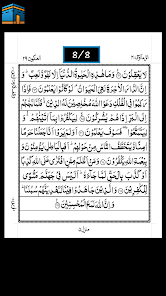 8/8
العنكبوت ٢٩
لَا يَعْقِلُوْنَ ۝ وَمَا هٰذِهِ الْحَيٰوةُ الدُّنْيَآ اِلَّا لَهْوٌ وَّلَعِبٌ ؕ وَ
اِنَّ الدَّارَ الْاٰخِرَةَ لَهِيَ الْحَيَوَانُ ۘ لَوْ كَانُوْا يَعْلَمُوْنَ ۝ فَاِذَا
رَكِبُوْا فِي الْفُلْكِ دَعَوُا اللّٰهَ مُخْلِصِيْنَ لَهُ الدِّيْنَ ۚ فَلَمَّا نَجّٰىهُمْ
اِلَى الْبَرِّ اِذَا هُمْ يُشْرِكُوْنَ ۝ لِيَكْفُرُوْا بِمَآ اٰتَيْنٰهُمْ ۙ وَ
لِيَتَمَتَّعُوْا ٝ فَسَوْفَ يَعْلَمُوْنَ ۝ اَوَلَمْ يَرَوْا اَنَّا جَعَلْنَا حَرَمًا
اٰمِنًا وَّيُتَخَطَّفُ النَّاسُ مِنْ حَوْلِهِمْ ؕ اَفَبِالْبَاطِلِ يُؤْمِنُوْنَ وَ
بِنِعْمَةِ اللّٰهِ يَكْفُرُوْنَ ۝ وَمَنْ اَظْلَمُ مِمَّنِ افْتَرٰى عَلَى اللّٰهِ
كَذِبًا اَوْ كَذَّبَ بِالْحَقِّ لَمَّا جَآءَهٗ ؕ اَلَيْسَ فِيْ جَهَنَّمَ مَثْوًى
لِّلْكٰفِرِيْنَ ۝ وَالَّذِيْنَ جَاهَدُوْا فِيْنَا لَنَهْدِيَنَّهُمْ سُبُلَنَا ؕ
وَاِنَّ اللّٰهَ لَمَعَ الْمُحْسِنِيْنَ ۝